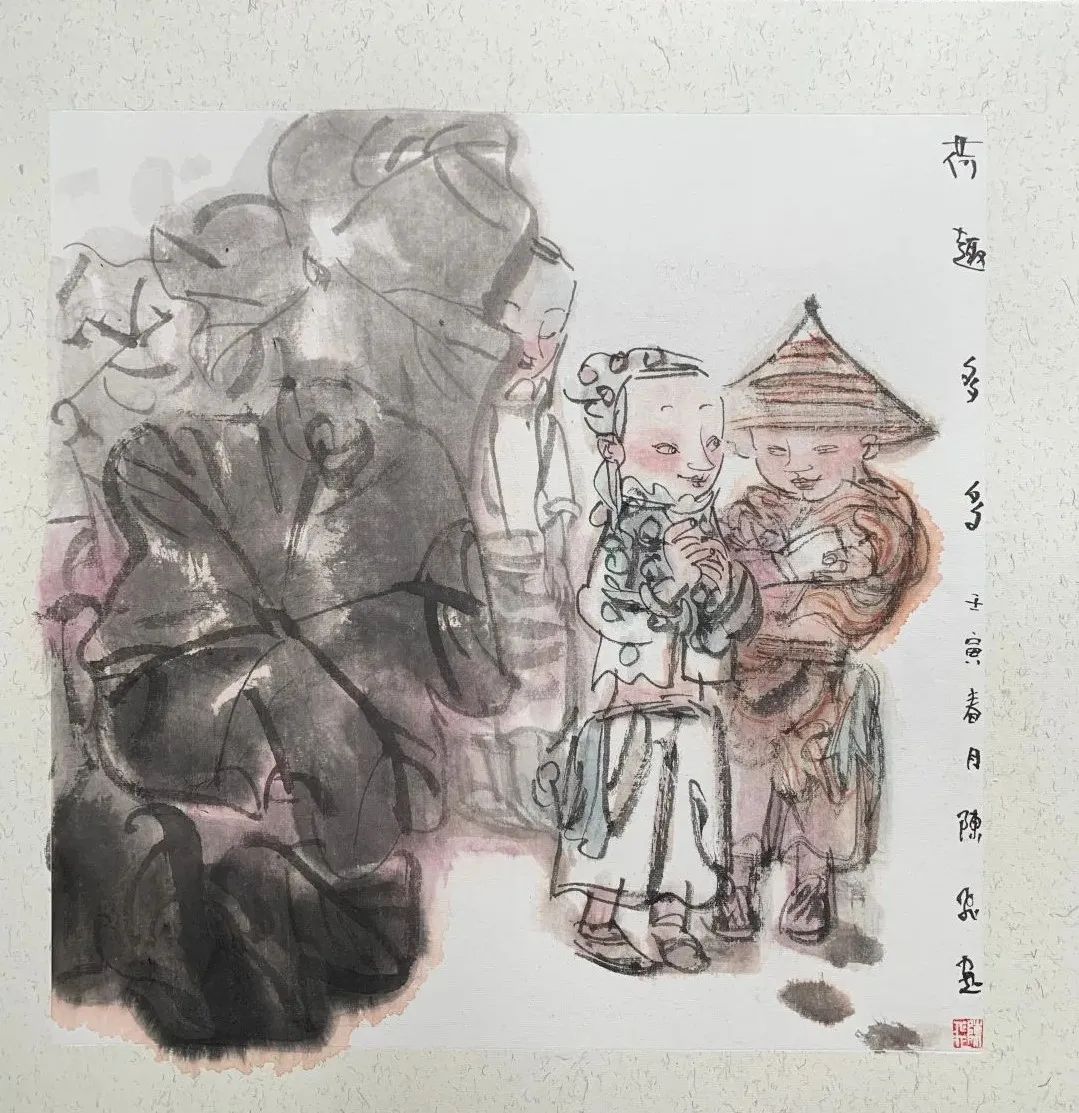 荷趣多多 壬寅春月陳